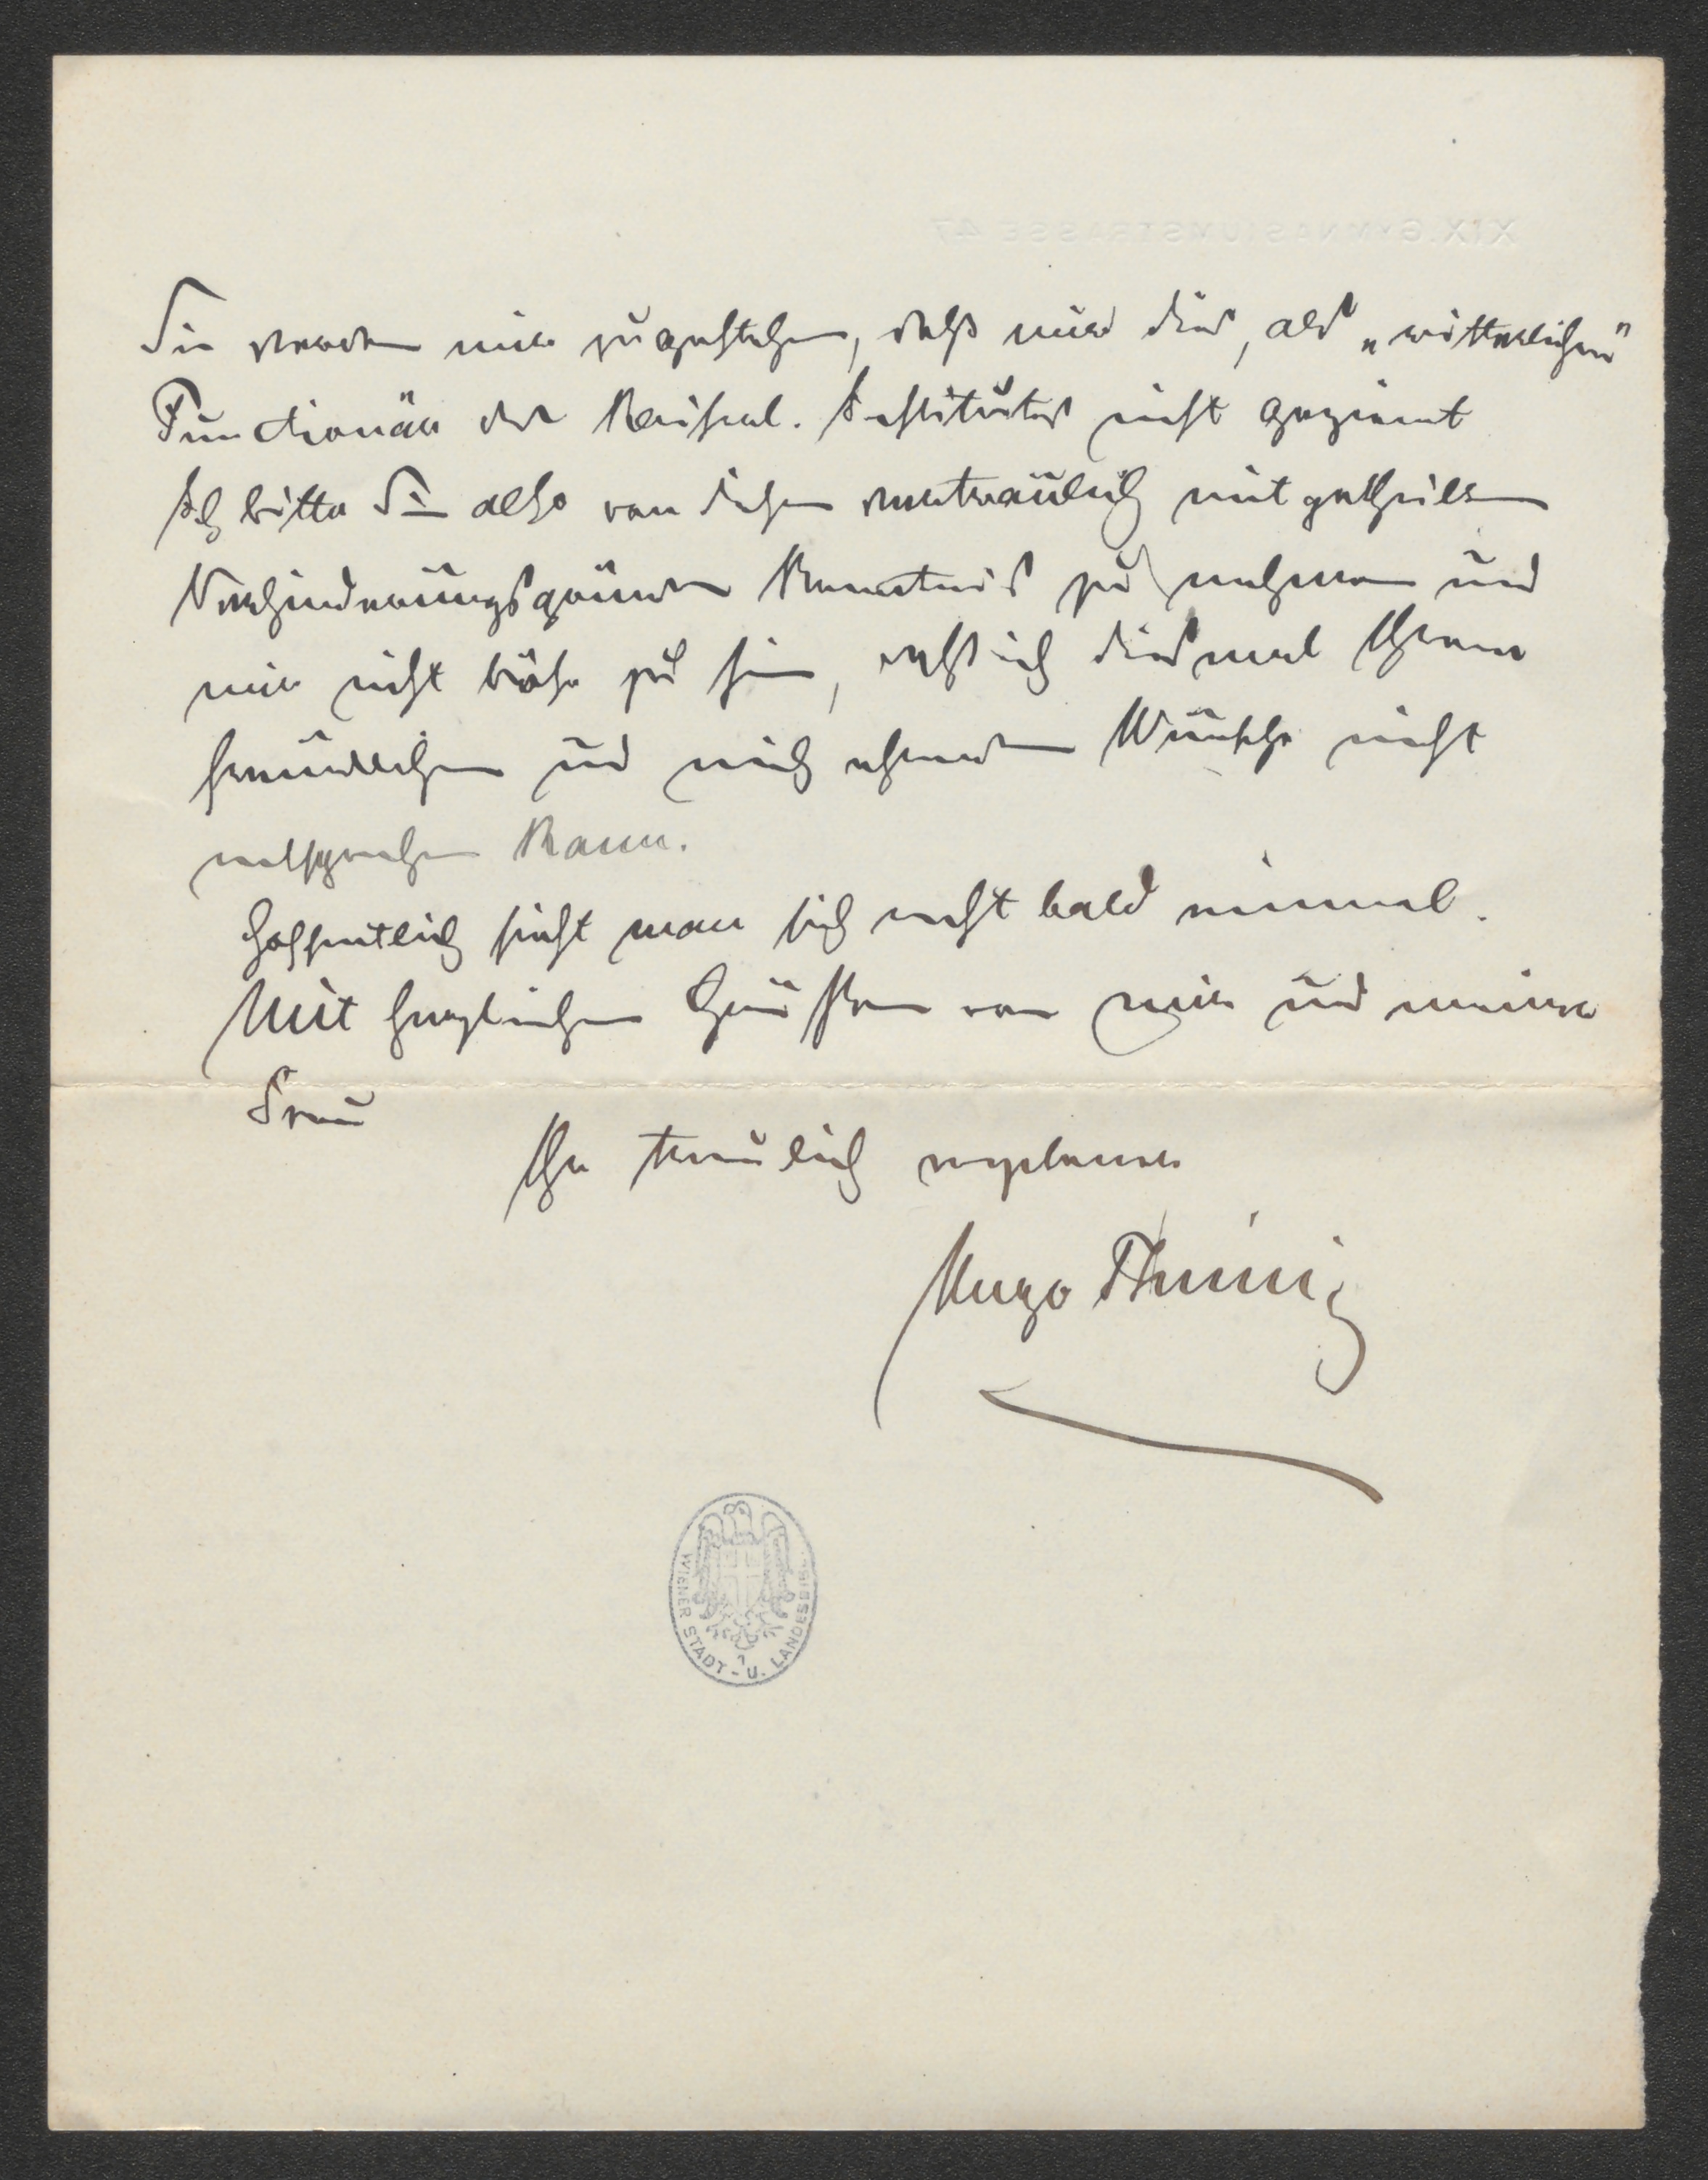 XIX. GYMNASIUMSTRASSE 47
Sie werden mir zugestehen, daß mir dies, als „ritterlichen"
Functionär des kaiserl. Institutes nicht geziemt
Ich bitte Sie also von diesen vertraulich mitgetheilten
Verhinderungsgründen Kenntnis zu nehmen und
mir nicht böse zu sein, daß ich diesmal Ihrem
freundlichen und mich ehrenden Wunsche nicht
entsprechen kann.
Hoffentlich sieht man sich recht bald einmal.
Mit herzlichen Grüßen von mir und meiner
Frau
Ihr treulich ergebener
Hugo Thimig
WIENER STADT- U. LANDESBIB.